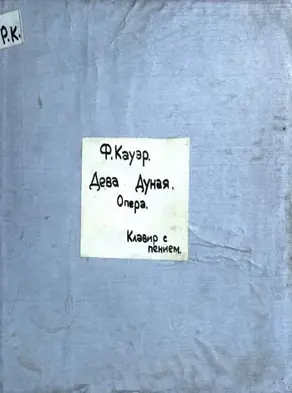 Р.К.
Ф. Кауэр.
Дева Дуная.
Опера.
Клавир с
пением.